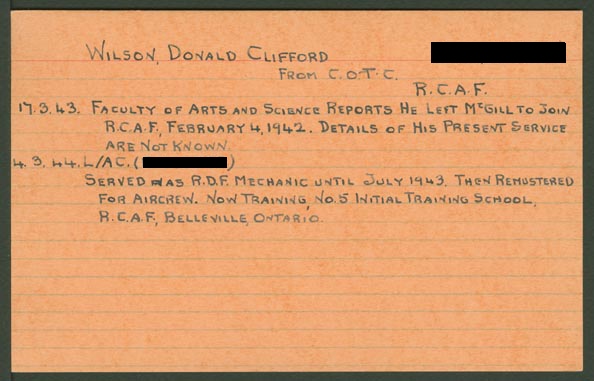 WILSON, DONALD CLIFFORD
FROM C.O.T.C.
R.C.A.F.
17.3.43. FACULTY OF ARTS AND SCIENCE REPORTS HE LEFT McGILL TO JOIN
R.C.A.F., FEBRUARY 4, 1942. DETAILS OF HIS PRESENT SERVICE
ARE NOT KNOWN.
4.3.44. L/AC. ( )
SERVED WAS R.D.F. MECHANIC UNTIL JULY 1943. THEN REMUSTERED
FOR AIRCREW. NOW TRAINING, NO.5 INITIAL TRAINING SCHOOL,
R.C.A.F., BELLEVILLE, ONTARIO.